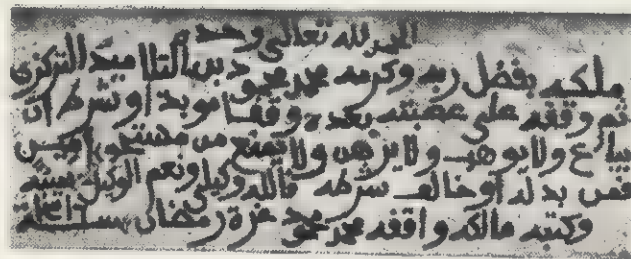 الحمد لله تعالى وحده
ملكه بفضل ربه وكرمه محمد محمود بن التلاميد التركزي
ثم وقفه على عصبته بعده وقفا موبدا وشرطه ان
يباع ولا يوهب ولا يرهن ولا يمنع من مستحقه
فمن بدله أو خالف شرطه فالله وكيله ونعم الوكيل
وكتبه مالكه واقفه محمد محمود غرة رمضان